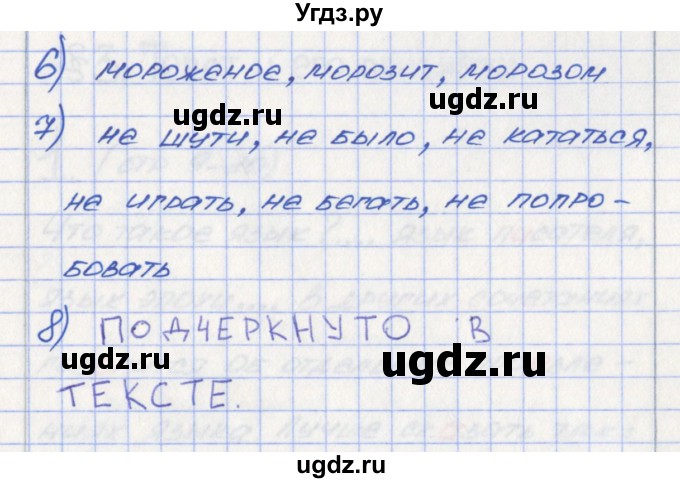 Угдз.ру
6) мороженое, морозит, морозом
ugdz.ru
ugdz.ru
7) не шути, не было, не кататься,
ugdz.ru
не играть, не бегать, не попро-
бовать
8) ПОДЧЕРКНУТО В
ugdz.ru
ugdz.ru
ТЕКСТЕ.
ugdz.ru